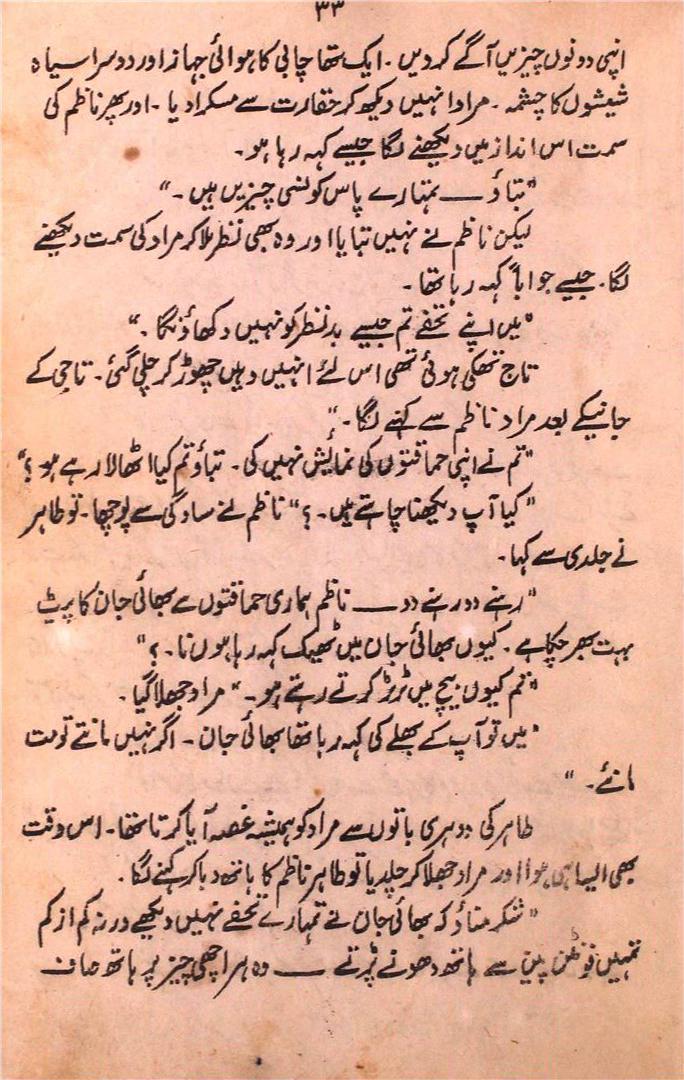 ۳۳
اپنی دونوں چیزیں آگے کر دیں ۔ ایک تھا چابی کا ہوائی جہاز اور دوسرا سیاہ
شیشوں کا چشمہ ۔ مراد انہیں دیکھ کر حقارت سے مسکرا دیا ۔ اور پھر ناظم کی
سمت اس انداز میں دیکھنے لگا جیسے کہہ رہا ہو ۔
"بتاؤ ــــ تمہارے پاس کونسی چیزیں ہیں ۔"
لیکن ناظم نے نہیں بتایا اور وہ بھی نظر ملا کر مراد کی سمت دیکھنے
لگا ۔ جیسے جواباً کہہ رہا تھا ۔
"میں اپنے تحفے تم جیسے بدنظر کو نہیں دکھاؤنگا ۔"
تاج تھکی ہوئی تھی اس لئے انہیں وہیں چھوڑ کر چلی گئی ۔ تاجی کے
جانیکے بعد مراد ناظم سے کہنے لگا ۔"
"تم نے اپنی حماقتوں کی نمائیش نہیں کی ۔ بتاؤ تم کیا اٹھا لا رہے ہو ؟"
"کیا آپ دیکھنا چاہتے ہیں ۔ ؟" ناظم نے سادگی سے پوچھا ۔ تو طاہر
نے جلدی سے کہا ۔
"رہنے دو رہنے دو ــــ ناظم ہماری حماقتوں سے بھائی جان کا پیٹ
بہت بھر چکا ہے ۔ کیوں بھائی جان میں ٹھیک کہہ رہا ہوں نا ۔ ؟"
"تم کیوں بیچ میں ٹرٹر کرتے رہتے ہو ۔" مراد جھلا گیا ۔
"میں تو آپ کے بھلے کی کہہ رہا تھا بھائی جان ۔ اگر نہیں مانتے تو مت
مانئے ۔"
طاہر کی دوہری باتوں سے مراد کو ہمیشہ غصہ آیا کرتا تھا ۔ اس وقت
بھی ایسا ہی ہوا اور مراد جھلا کر چلدیا تو طاہر ناظم کا ہاتھ دبا کر کہنے لگا ۔
"شکر مناؤ کہ بھائی جان نے تمہارے تحفے نہیں دیکھے ورنہ کم از کم
تمہیں فونٹن پین سے ہاتھ دھونے پڑتے ــــ وہ ہر اچھی چیز پر ہاتھ صاف